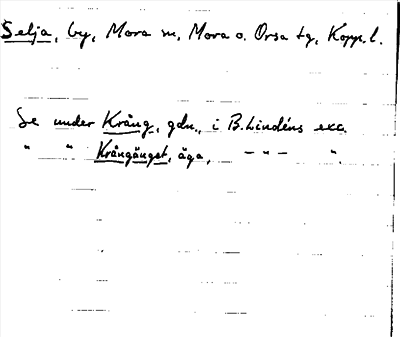 Selja, by, Mora sn, Mora o. Orsa tg, Kopp. l.
Se under Krång, gdn., i B. Lindéns exc.
" " Krångänget, äga, — " — ".